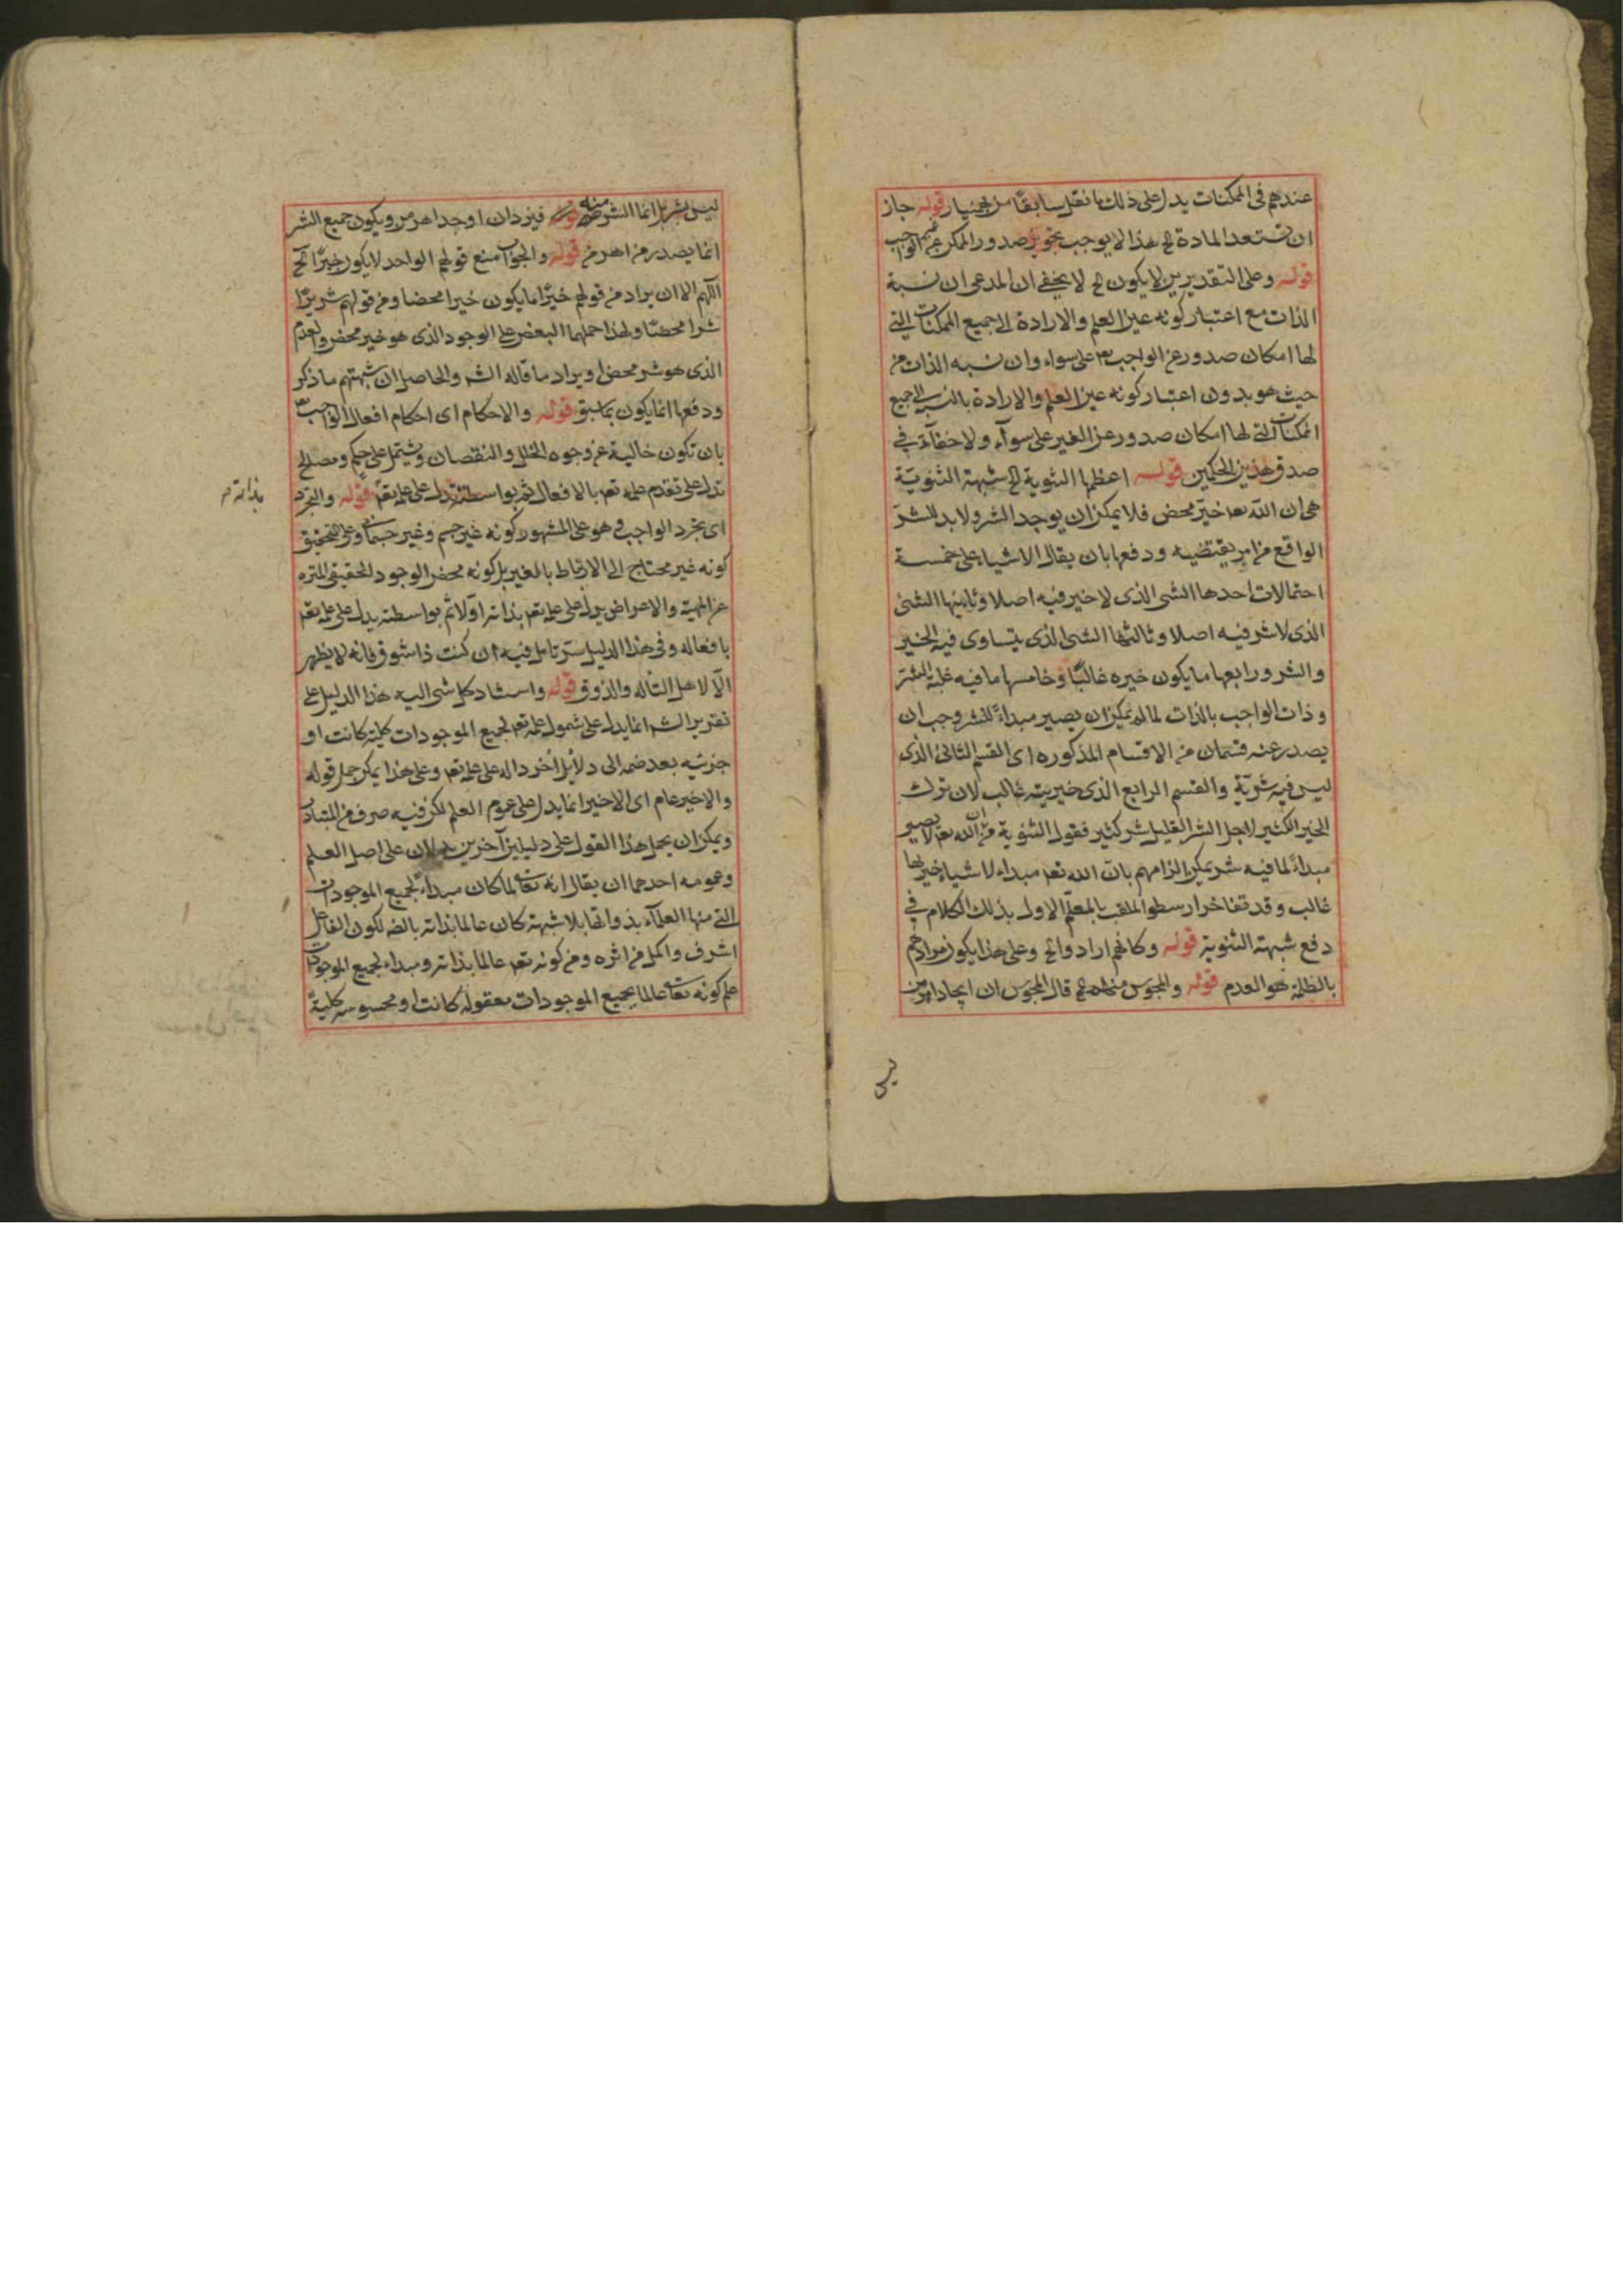 عندهم فى الممكنات يدل على ذلك ما نقل سابقا من بهمنيار قوله جاز
ان تستعد المادة الخ هذا لا يوجب تجويز صدور الممكن عن غير الواجب
قوله وعلى التقديرين لا يكون الخ لا يخفى ان المدعى ان نسبة
الذات مع اعتبار كونه عين العلم والارادة الى جميع الممكنات التى
لها امكان صدور عن الواجب تعالى على سواء وان نسبه الذات من
حيث هو بدون اعتبار كونه عين العلم والارادة بالنسبة الى جميع
الممكنات التى لها امكان صدور عن الغير على سوآء ولا خفاء فى
صدق هذين الحكمين قوله اعظمها الثنوية الخ شبهة الثنويّة
هى ان اللّه تعـ خيّر محض فلا يمكن ان يوجد الشر ولا بد للشرّ
الواقع من امر يقتضيه ودفعها بان يقال الاشياء على خمسة
احتمالات احدها الشى الذى لا خير فيه اصلا وثانيها الشئ
الذى لا شر فيه اصلا وثالثها الشئ الذى يتساوى فيه الخير
والشر ورابعها ما يكون خيره غالبًا وخامسها ما فيه غلبة الشرّ
وذات الواجب بالذات لما لم يمكن ان يصير مبداءً للشر وجب ان
يصدر عنه قسمان من الاقسام المذكوره اى القسم الثانى الذى
ليس فيه شريّة والقسم الرابع الذى خيريته غالب لان ترك
الخير الكثير لاجل الشر القليل شر كثير فقول الثنوية من ان الله تعـ لا يصير
مبداءً لما فيه شر يمكن الزامهم بان الله تعـ مبداء لاشياء خيريتها
غالب وقد تفاخر ارسطو الملقب بالمعلّم الاول بذلك الكلام في
دفع شبهة الثنوية قوله وكانهم ارادوا الخ وعلى هذا يكون مرادهم
بالظلمة هو العدم قوله والمجوس منهم قال المجوس ان ايجاد اهرمن
ليس
ليس بشر بل انما الشر منه فيزدان اوجد اهرمن ويكون جميع الشر
انما يصدر من اهرمن قوله والجواب منع قولهم الواحد لا يكون خيّرًا الخ
اللّهم الا ان يراد من قولهم خيّرًا ما يكون خيرا محضا ومن قولهم شريرًا
شرا محضًا ولهذا حملهما البعض على الوجود الذى هو خير محض والعدم
الذى هو شر محض او يراد ما قاله الشر والحاصل ان شبهتهم ما ذكر
ودفعها انما يكون بما سبق قوله والاحكام اى احكام افعال الواجب تعـ
بان تكون خالية عن وجوه الخلل والنقصان وتشتمل على حكم ومصالح
تدل على تقدم علمه تعـ بالافعال ثم بواسطته تدل على علمه تعـ قوله والتجرد
بذاته م
اى تجرد الواجب وهو على المشهور كونه غير جسم وغير جسمانى وعلى التحقيق
كونه غير محتاج الى الارتباط بالغير بل كونه محض الوجود الحقيقى المنزه
عن المهية والاعراض يدل على علمه تعـ بذاته اوّلا ثم بواسطته يدل على علمه تعـ
بافعاله وفى هذا الدليل سرّ تامل فيه ان كنت ذا شوق فانه لا يظهر
الّا لاهل التاله والذوق قوله واستناد كل شئ اليه هذا الدليل على
تقرير الشـ انما يدل على شمول علمه تعـ لجميع الموجودات كلية كانت او
جزئيه بعد ضمه الى دلائل اُخر داله على علمه تعـ وعلى هذا يمكن حمل قوله
والاخير عام اى الاخير انما يدل على عموم العلم لكن فيه صرف من المتبادر
ويمكن ان يحمل هذا القول على دليلين آخرين يدلان على اصل العلم
وعمومه احدهما ان يقال انه تعالى لما كان مبداءً لجميع الموجودات
التى منها العلمآء بذواتها بلا شبهة كان عالما بذاته بالضـ لكون الفاعل
اشرف واكمل من اثره ومن كونه تعـ عالما بذاته ومبداء لجميع الموجودات
علم كونه تعالى عالما بجميع الموجودات معقوله كانت او محسوسه كليةً